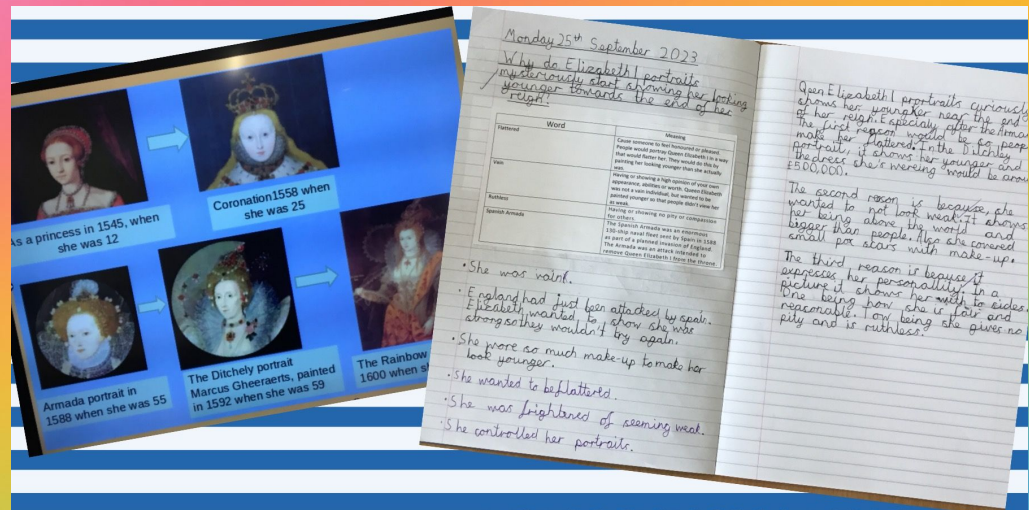 As a princess in 1545, when
she was 12
Coronation1558 when
she was 25
Armada portrait in
1588 when she was 55
The Ditchely portrait
Marcus Gheeraerts, painted
in 1592 when she was 59
The Rainbow
1600 when s
Monday 25th September 2023
Why do Elizabeth I portraits
mysteriously start showing her looking
younger towards the end of her
reign?
Word
Meaning
Flattered
Cause someone to feel honoured or pleased.
People would portray Queen Elizabeth I in a way
that would flatter her. They would do this by
painting her looking younger than she actually
was.
Vain
Having or showing a high opinion of your own
appearance, abilities or worth. Queen Elizabeth
was not a vain individual, but wanted to be
painted younger so that people didn't view her
as weak.
Ruthless
Having or showing no pity or compassion
for others.
Spanish Armada
The Spanish Armada was an enormous
130-ship naval fleet sent by Spain in 1588
as part of a planned invasion of England.
The Armada was an attack intended to
remove Queen Elizabeth I from the throne.
• She was vain.
• England had Just been attacked by spain.
Elizabeth wanted to show she was
strong so they wouldn't try again.
• She wore so much make-up to make her
look younger.
• She wanted to be flattered.
• She was frightened of seeming weak.
• She controlled her portraits.
Qeen Elizabeth I prortraits curiously
shows her younger near the end
of her reigh. Especialy after the Arma
The first reason would be for peop
make her flattered. In the Ditchley
portrait, it shows her younger and
the dress she's wereing would be arou
£500,000.
The second reson is because, she
wanted to not look weak. It shows
her being above the world and
bigger than people. Also she covered
small pox scars with make-up.
The third reason is beause it
expresses her personallity. In a
picture it shows her with to sides.
One being how she is fair and
reasonable. Tow being she gives no
pity and is ruthless.